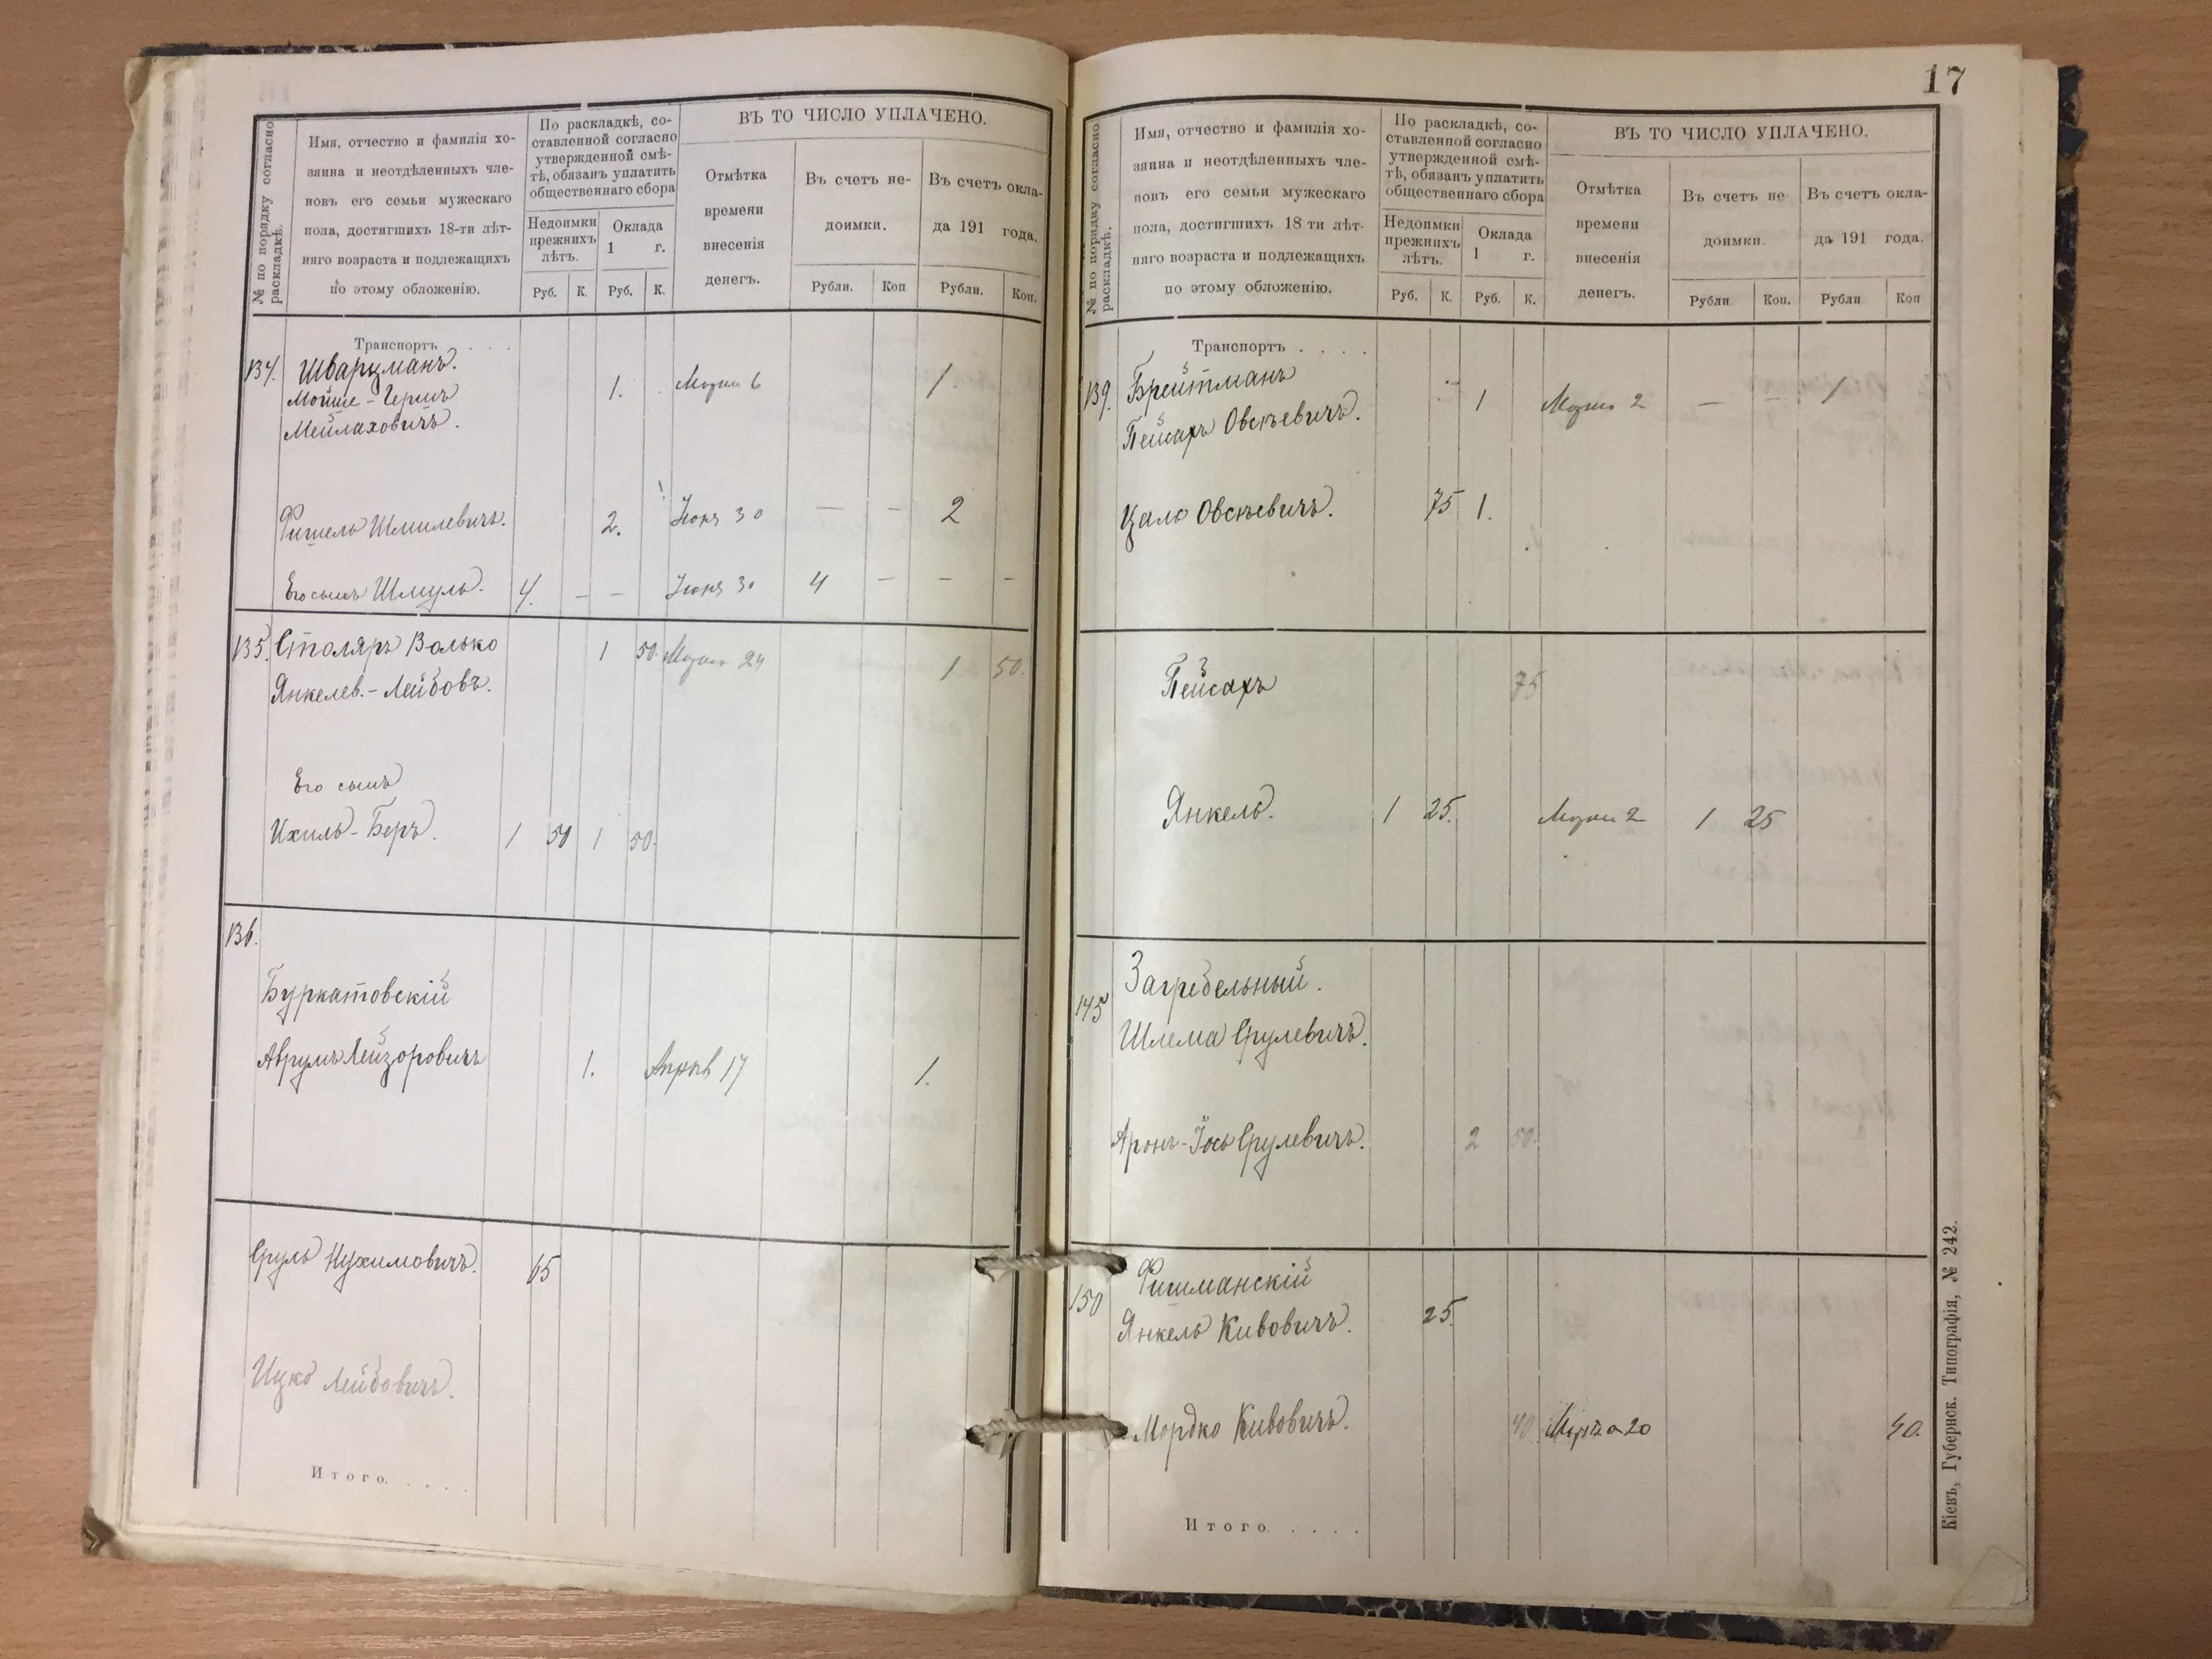 17
№ по порядку согласно раскладкѣ.
Имя, отчество и фамилія хо-
зяина и неотдѣленныхъ чле-
новъ его семьи мужескаго
пола, достигшихъ 18-ти лѣт-
няго возраста и подлежащихъ
по этому обложенію.
По раскладкѣ, со-
ставленной согласно
утвержденной смѣ-
тѣ, обязанъ уплатить
общественнаго сбора
Недоимки
прежнихъ
лѣтъ.
Оклада
1 г.
Руб. К. Руб. К.
ВЪ ТО ЧИСЛО УПЛАЧЕНО.
Отмѣтка
времени
внесенія
денегъ.
Въ счетъ не-
доимки.
Въ счетъ окла-
да 191 года.
Рубли. Коп Рубли. Коп.
Транспортъ . . .
134. Шварцманъ.
Мойше-Гершъ 1. 6 1.
Мейлаховичъ.
Фишель Шмилевичъ. 2. Іюня 30 — – 2
Его сынъ Шмуль. 4. – – Іюня 30 4 – – –
135. Столяръ Волько 1 50. 24 1 50.
Янкелев.-Лейбовъ.
Его сынъ
Ихиль-Беръ. 1 50 1 50.
136.
Буркатовскій
Аврумъ Лейзоровичъ 1. 17 1.
Сруль Нухимовичъ. 65
Ицко Лейбовичъ.
Итого. . . . .
№ по порядку согласно раскладкѣ.
Имя, отчество и фамилія хо-
зяина и неотдѣленныхъ чле-
новъ его семьи мужескаго
пола, достигшихъ 18 ти лѣт-
няго возраста и подлежащихъ
по этому обложенію.
По раскладкѣ, со-
ставленной согласно
утвержденной смѣ-
тѣ, обязанъ уплатить
общественнаго сбора
Недоимки
прежнихъ
лѣтъ.
Оклада
1 г.
Руб. К. Руб. К.
ВЪ ТО ЧИСЛО УПЛАЧЕНО.
Отмѣтка
времени
внесенія
денегъ.
Въ счетъ не-
доимки.
Въ счетъ окла-
да 191 года.
Рубли Коп. Рубли Коп
Транспортъ . . . .
139. Брейтманъ
Пейсахъ Овсѣевичъ. 1 2 — – 1
Цаль Овсѣевичъ. 75 1.
Пейсахъ 75
Янкель. 1 25. 2 1 25
145 Загребельный.
Шлема Срулевичъ.
Аронъ-Іось Срулевичъ. 2 50.
150 Фишманскій
Янкель Кивовичъ. 25.
Мордко Кивовичъ. 40 Марта 20 40.
Итого. . . . .
Кіевъ, Губернск. Типографія, № 242.